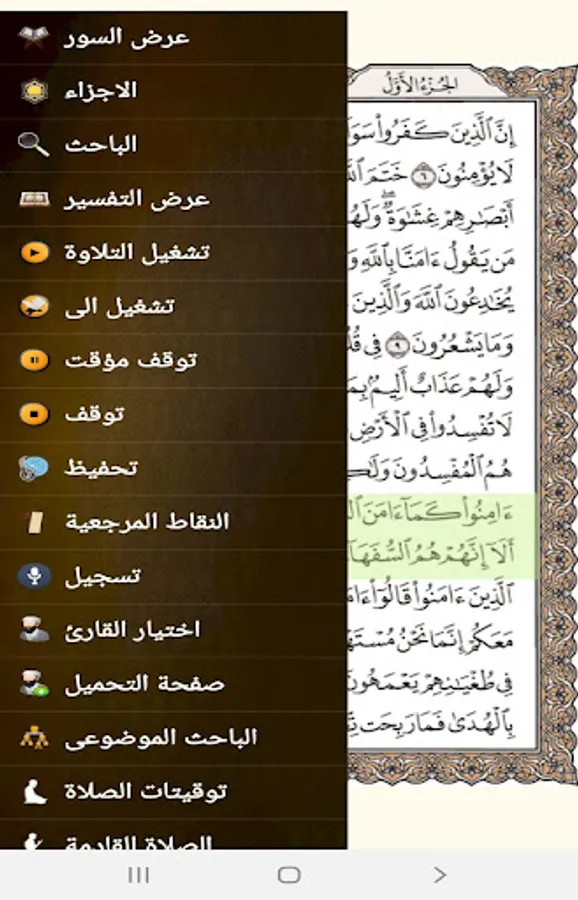 عرض السور
الاجزاء
الباحث
عرض التفسير
تشغيل التلاوة
تشغيل الى
توقف مؤقت
توقف
تحفيظ
النقاط المرجعية
تسجيل
اختيار القارئ
صفحة التحميل
الباحث الموضوعى
توقيتات الصلاة
الصلاة القادمة
الجُزْءُ الأَوَّلُ
إِنَّ ٱلَّذِينَ كَفَرُواْ سَوَا
لَا يُؤْمِنُونَ ٦ خَتَمَ ٱللَّ
أَبْصَٰرِهِمْ غِشَٰوَةٌ وَلَهُ
مَن يَقُولُ ءَامَنَّا بِٱللَّهِ وَ
يُخَٰدِعُونَ ٱللَّهَ وَٱلَّذِينَ
وَمَا يَشْعُرُونَ ٩ فِي قُلُ
وَلَهُمْ عَذَابٌ أَلِيمٌۢ بِمَ
لَا تُفْسِدُواْ فِي ٱلْأَرْضِ
هُمُ ٱلْمُفْسِدُونَ وَلَٰكِ
ءَامِنُواْ كَمَآ ءَامَنَ ٱل
أَلَآ إِنَّهُمْ هُمُ ٱلسُّفَهَآ
ٱلَّذِينَ ءَامَنُواْ قَالُوٓاْ ءَامَ
مَعَكُمْ إِنَّمَا نَحْنُ مُسْتَهْ
فِي طُغْيَٰنِهِمْ يَعْمَهُونَ
بِٱلْهُدَىٰ فَمَا رَبِحَت تِّ